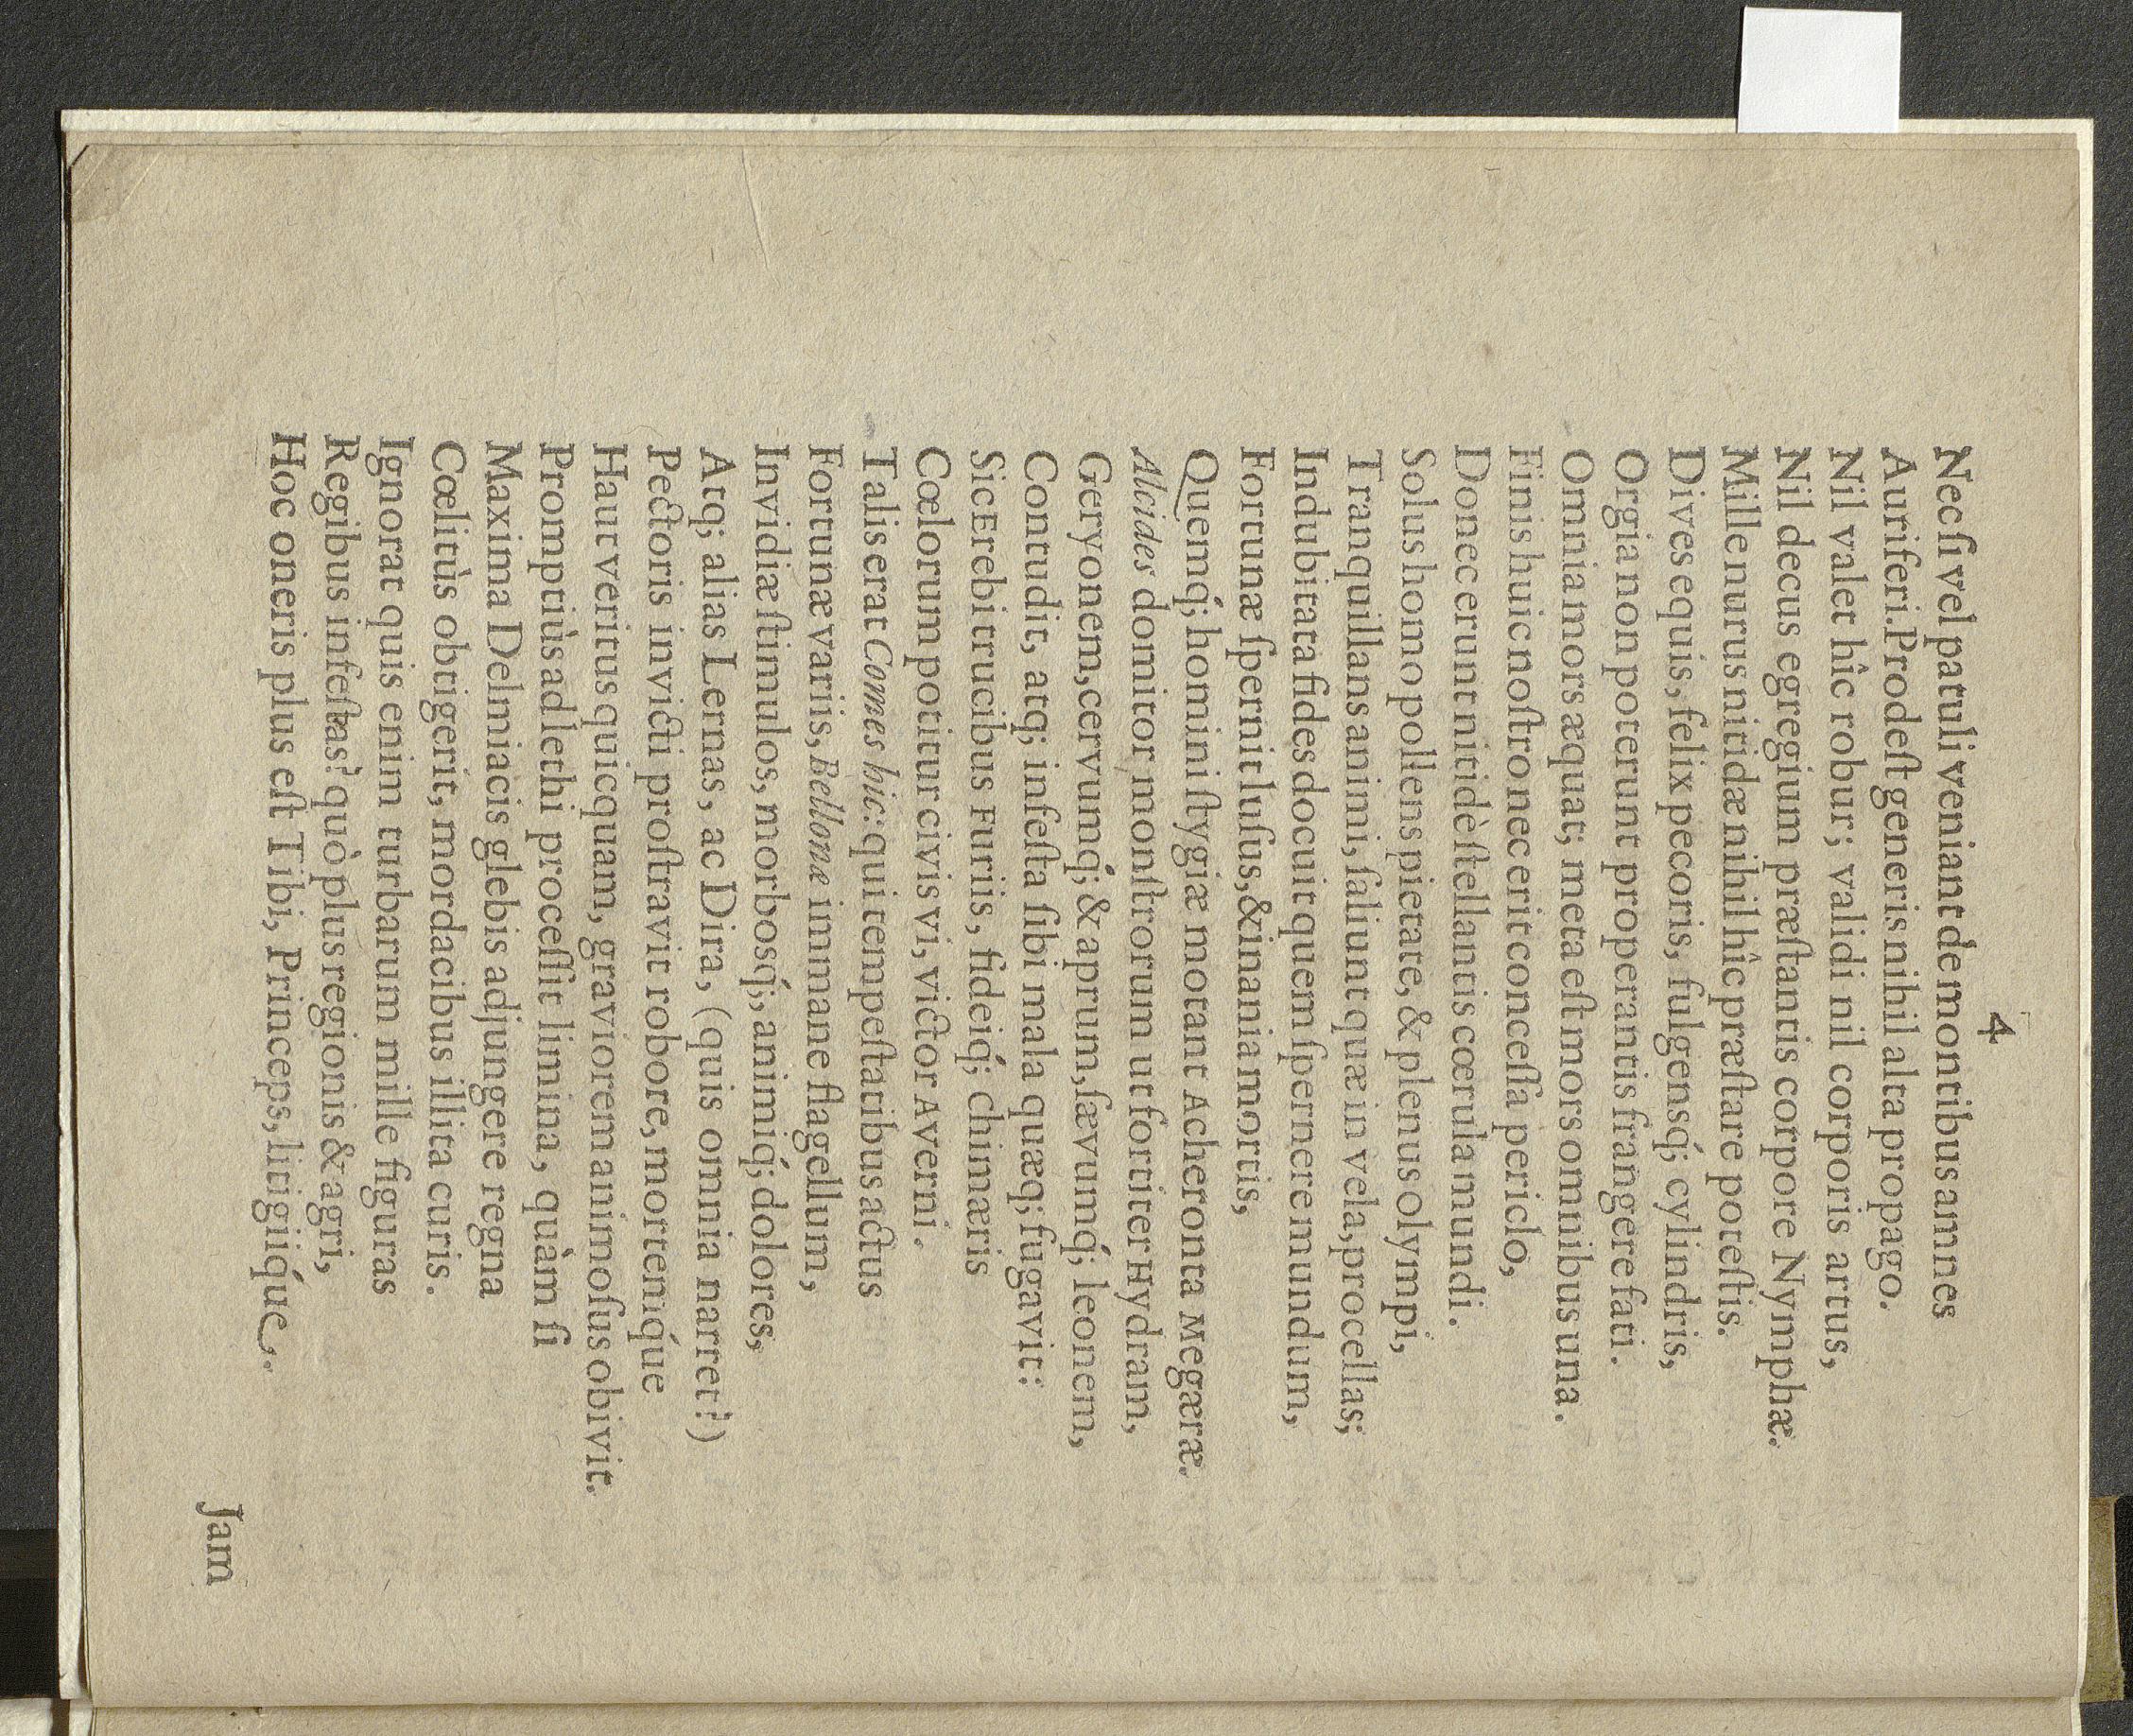 4
Nec ſi vel patuli veniant de montibus amnes
Auriferi. Prodeſt generis nihil alta propago.
Nil valet hîc robur; validi nil corporis artus,
Nil decus egregium præſtantis corpore Nymphæ.
Mille nurus nitidæ nihil hîc præſtare poteſtis.
Dives equis, felix pecoris, fulgensq́; cylindris,
Orgia non poterunt properantis frangere fati.
Omnia mors æquat; meta eſt mors omnibus una.
Finis huic noſtro nec erit conceſſa periclo,
Donec erunt nitidè ſtellantis cœrula mundi.
Solus homo pollens pietate, & plenus olympi,
Tranquillans animi, ſaliunt quæ in vela, procellas;
Indubitata fides docuit quem ſpernere mundum,
Fortunæ ſpernit luſus, & inania mortis,
Quemq́; homini ſtygiæ motant Acheronta Megæræ.
Alcides domitor monſtrorum ut fortiter Hydram,
Geryonem, cervumq́; & aprum, ſævumq́; leonem,
Contudit, atq; infeſta ſibi mala quæq; fugavit:
Sic Erebi trucibus Furiis, fideiq́; chimæris
Cœlorum potitur civis vi, victor Averni.
Talis erat Comes hic: qui tempeſtatibus actus
Fortunæ variis, Bellonæ immane flagellum,
Invidiæ ſtimulos, morbosq́;, animiq́; dolores,
Atq; alias Lernas, ac Dira, (quis omnia narret?)
Pectoris invicti proſtravit robore, mortemq́ue
Haut veritus quicquam, graviorem animoſus obivit.
Promptiùs ad lethi proceſſit limina, quàm ſi
Maxima Delmiacis glebis adjungere regna
Cœlitùs obtigerit, mordacibus illita curis.
Ignorat quis enim turbarum mille figuras
Regibus infeſtas? quò plus regionis & agri,
Hoc oneris plus eſt Tibi, Princeps, litigiiq́ue.
Jam